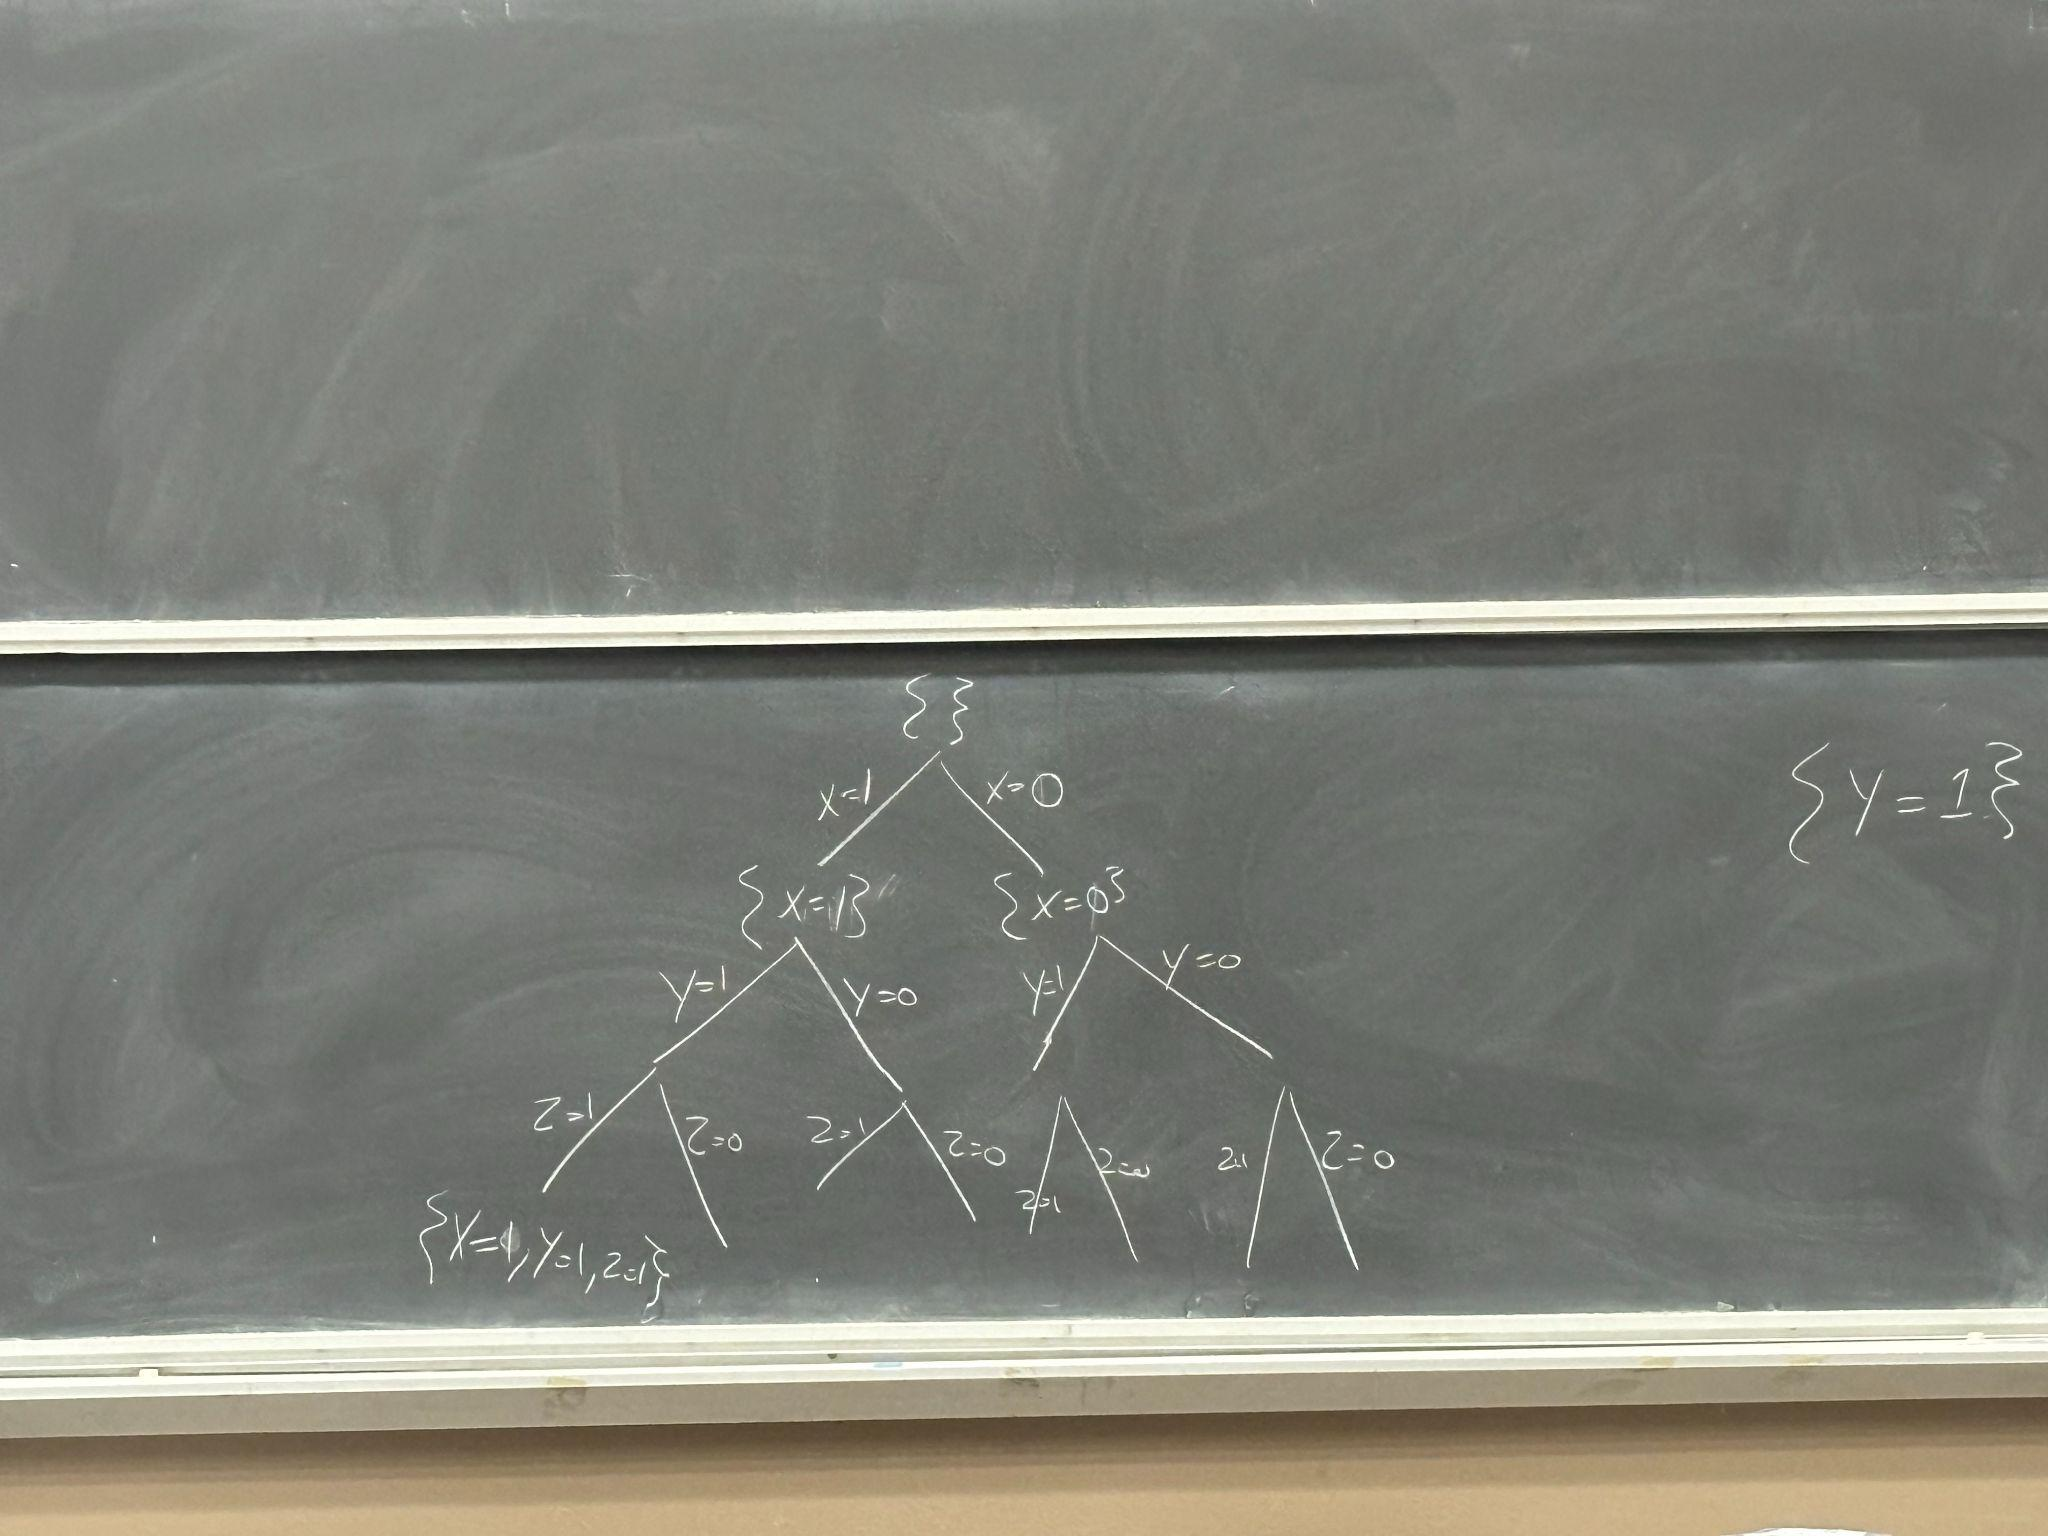 { }
x=1 x=0
{y=1}
{x=1} {x=0}
y=1 y=0 y=1 y=0
z=1 z=0 z=1 z=0 z=1 z=0 z=1 z=0
{x=1, y=1, z=1}